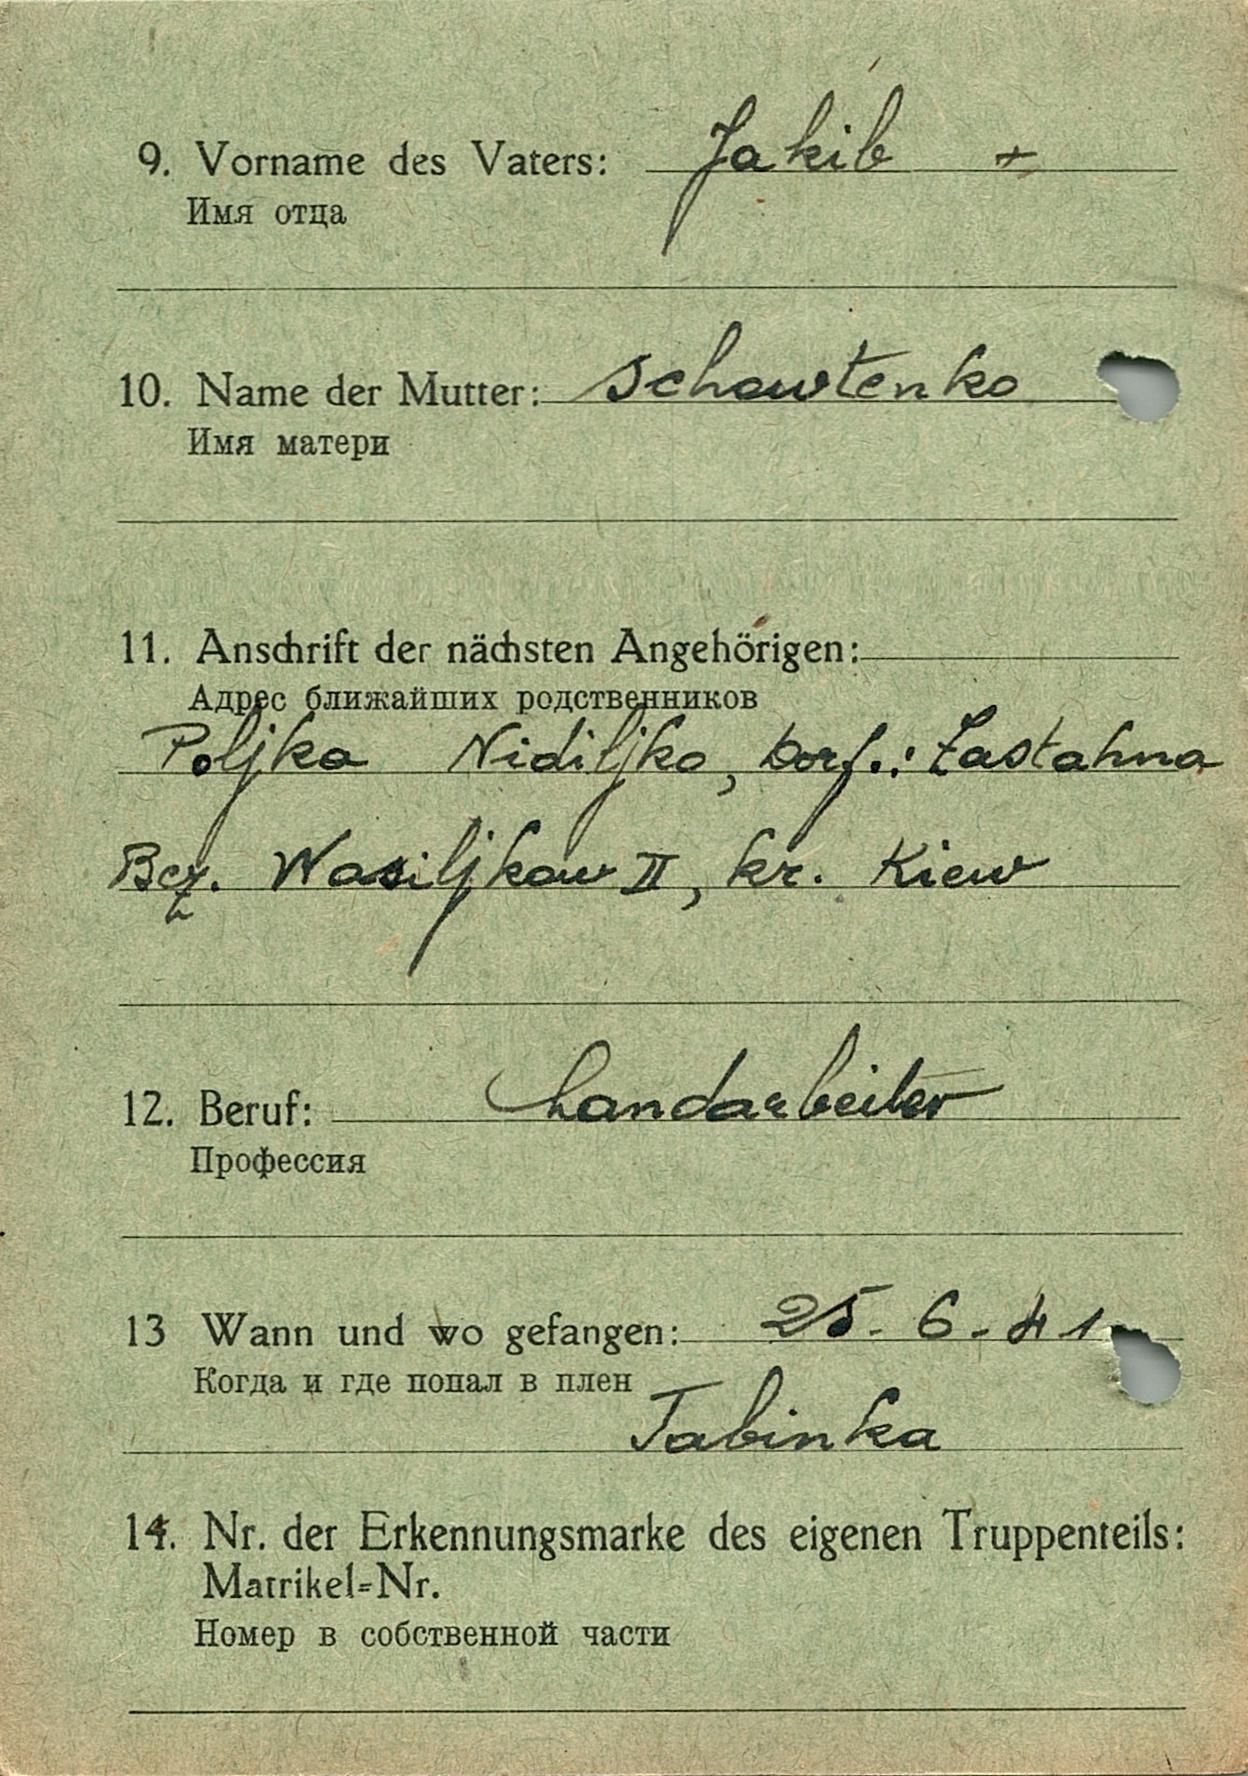 9. Vorname des Vaters: Jakib +
Имя отца
10. Name der Mutter: Schowtenko
Имя матери
11. Anschrift der nächsten Angehörigen:
Адрес ближайших родственников
Poljka Nidiljko, Dorf.: Zastahna
Bez. Wasiljkow II, kr. Kiew
12. Beruf: Landarbeiter
Профессия
13 Wann und wo gefangen: 25. 6. 41
Когда и где попал в плен
Tabinka
14. Nr. der Erkennungsmarke des eigenen Truppenteils:
Matrikel=Nr.
Номер в собственной части